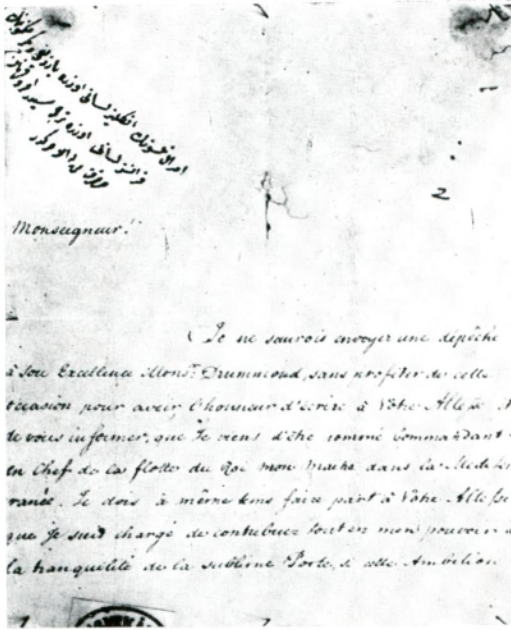 انكليز لسانى اوزره
فرانسز لسانى اوزره
2
Monseigneur!
Je ne saurois envoyer une dépêche
à Son Excellence Monsr. Drummond, sans profiter de cette
occasion pour avoir, l'honneur d'écrire à Votre Altesse, et
de vous informer, que Je viens d'être nommé Commandant
en Chef de la flotte du Roi mon Maitre dans la Mediter
ranée. Je dois à même tems faire part à Votre Altesse
que Je suis chargé de contribuer tout en mon pouvoir à
la tranquilité de la sublime Porte, si cette Ambition